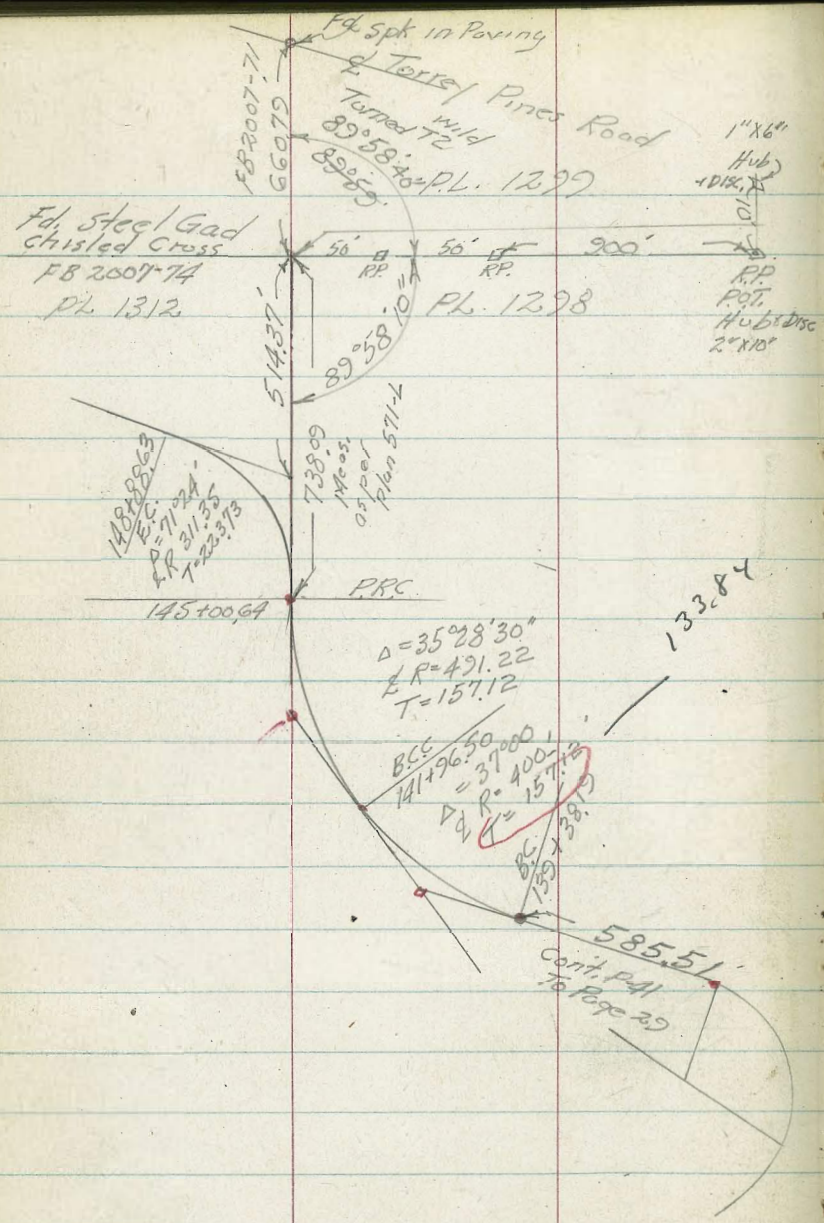 Fd Spk in Paving
℄ Torrey Pines Road
FB2007-71
660.79
Turned Wild T2
89°58'40"
89°59'
P.L. 1299
1"X6"
Hub
+Disc
10'
Fd. Steel Gad
Chisled Cross
FB 2007-74
P.L. 1312
50'
R.P.
50'
R.P.
900'
R.P.
P.O.T.
Hub & Disc
2"X10"
P.L. 1298
514.37'
89°58'10"
738.09
Meas.
as per
Plan 571-L
148+88.63
E.C.
Δ=71°24'
℄ R 311.35
T=223.73
P.R.C.
145+00.64
133.84
Δ=35°28'30"
℄ R=491.22
T=157.12
B.C.C.
141+96.50
Δ = 37°00'
℄ R= 400'
T= 157.12'
B.C.
139+38.19
585.51
Cont. P-41
To Page 29